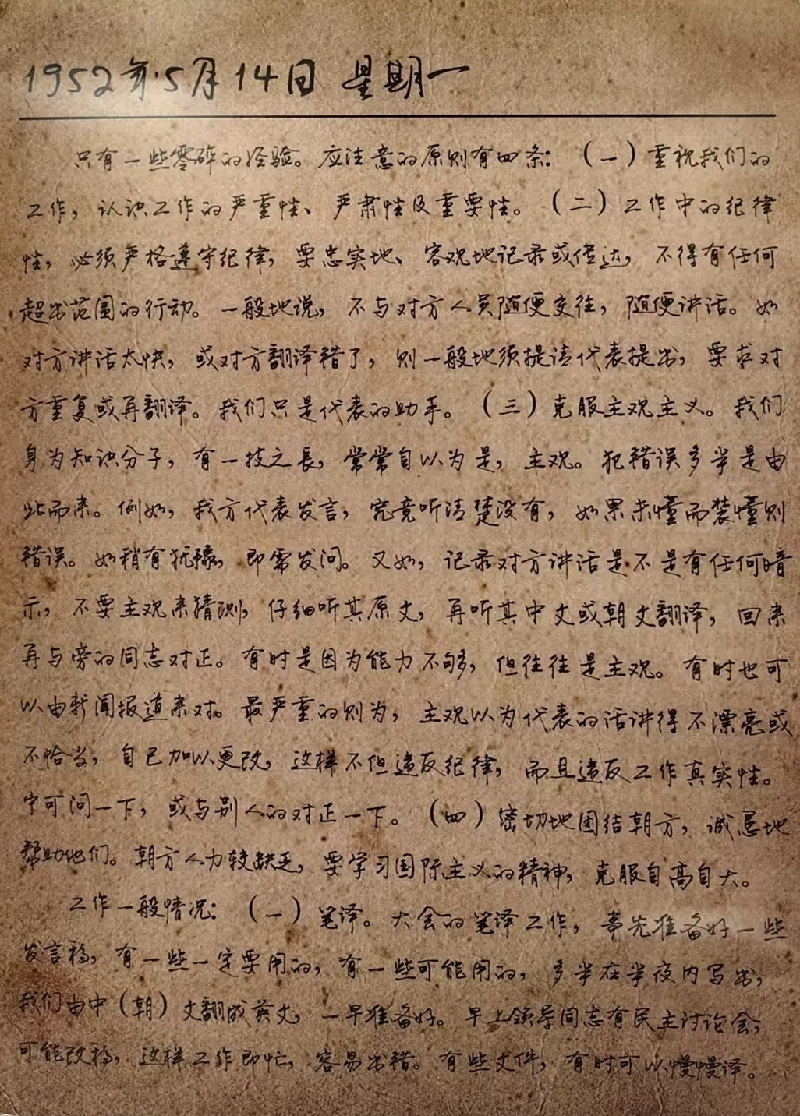 1952年5月14日 星期一
只有一些零碎的经验。应注意的原则有四条：（一）重视我们的
工作，认识工作的严重性、严肃性及重要性。（二）工作中的纪律
性，必须严格遵守纪律，要忠实地、客观地记录或传达，不得有任何
超出范围的行动。一般地说，不与对方人员随便交往，随便讲话。如
对方讲话太快，或对方翻译错了，则一般地须提请代表提出，要求对
方重复或再翻译。我们只是代表的助手。（三）克服主观主义。我们
身为知识分子，有一技之长，常常自以为是，主观。犯错误多半是由
此而来。例如，我方代表发言，究竟听清楚没有，如果未懂而装懂则
错误。如稍有犹豫，即需发问。又如，记录对方讲话是不是有任何暗
示，不要主观来猜测，仔细听其原文，再听其中文或朝文翻译，回来
再与旁的同志对正。有时是因为能力不够，但往往是主观。有时也可
以由新闻报道来对。最严重的则为，主观以为代表的话讲得不漂亮或
不恰当，自己加以更改，这样不但违反纪律，而且违反工作真实性。
宁可问一下，或与别人的对正一下。（四）密切地团结朝方，诚恳地
帮助他们。朝方人力较缺乏，要学习国际主义的精神，克服自高自大。
工作一般情况：（一）笔译。大会的笔译工作，事先准备好一些
发言稿，有一些一定要用的，有一些可能用的，多半在半夜内写出，
我们由中（朝）文翻成英文，一早准备好。早上领导同志有民主讨论会，
可能改稿，这样工作即忙，容易出错。有些文件，有时可以慢慢译。